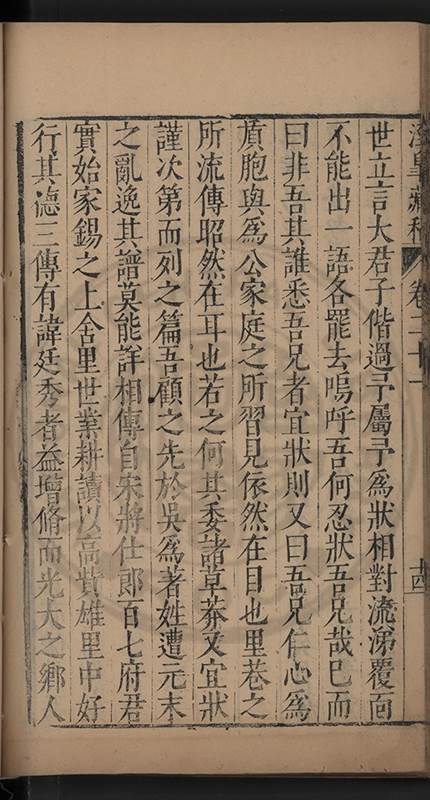 涇臯藏稿 卷二十一 十四
世立言大君子偕過予屬予為狀相對流涕覆面
不能出一語各罷去嗚呼吾何忍狀吾兄哉已而
曰非吾其誰悉吾兄者宜狀則又曰吾兄仁心為
質胞與為公家庭之所習見依然在目也里巷之
所流傳昭然在耳也若之何其委諸草莽又宜狀
謹次第而列之篇吾顧之先於吳為著姓遭元末
之亂逸其譜莫能詳相傳自宋將仕郎百七府君
實始家錫之上舍里世業耕讀以高貲雄里中好
行其德三傳有諱廷秀者益增脩而光大之鄉人